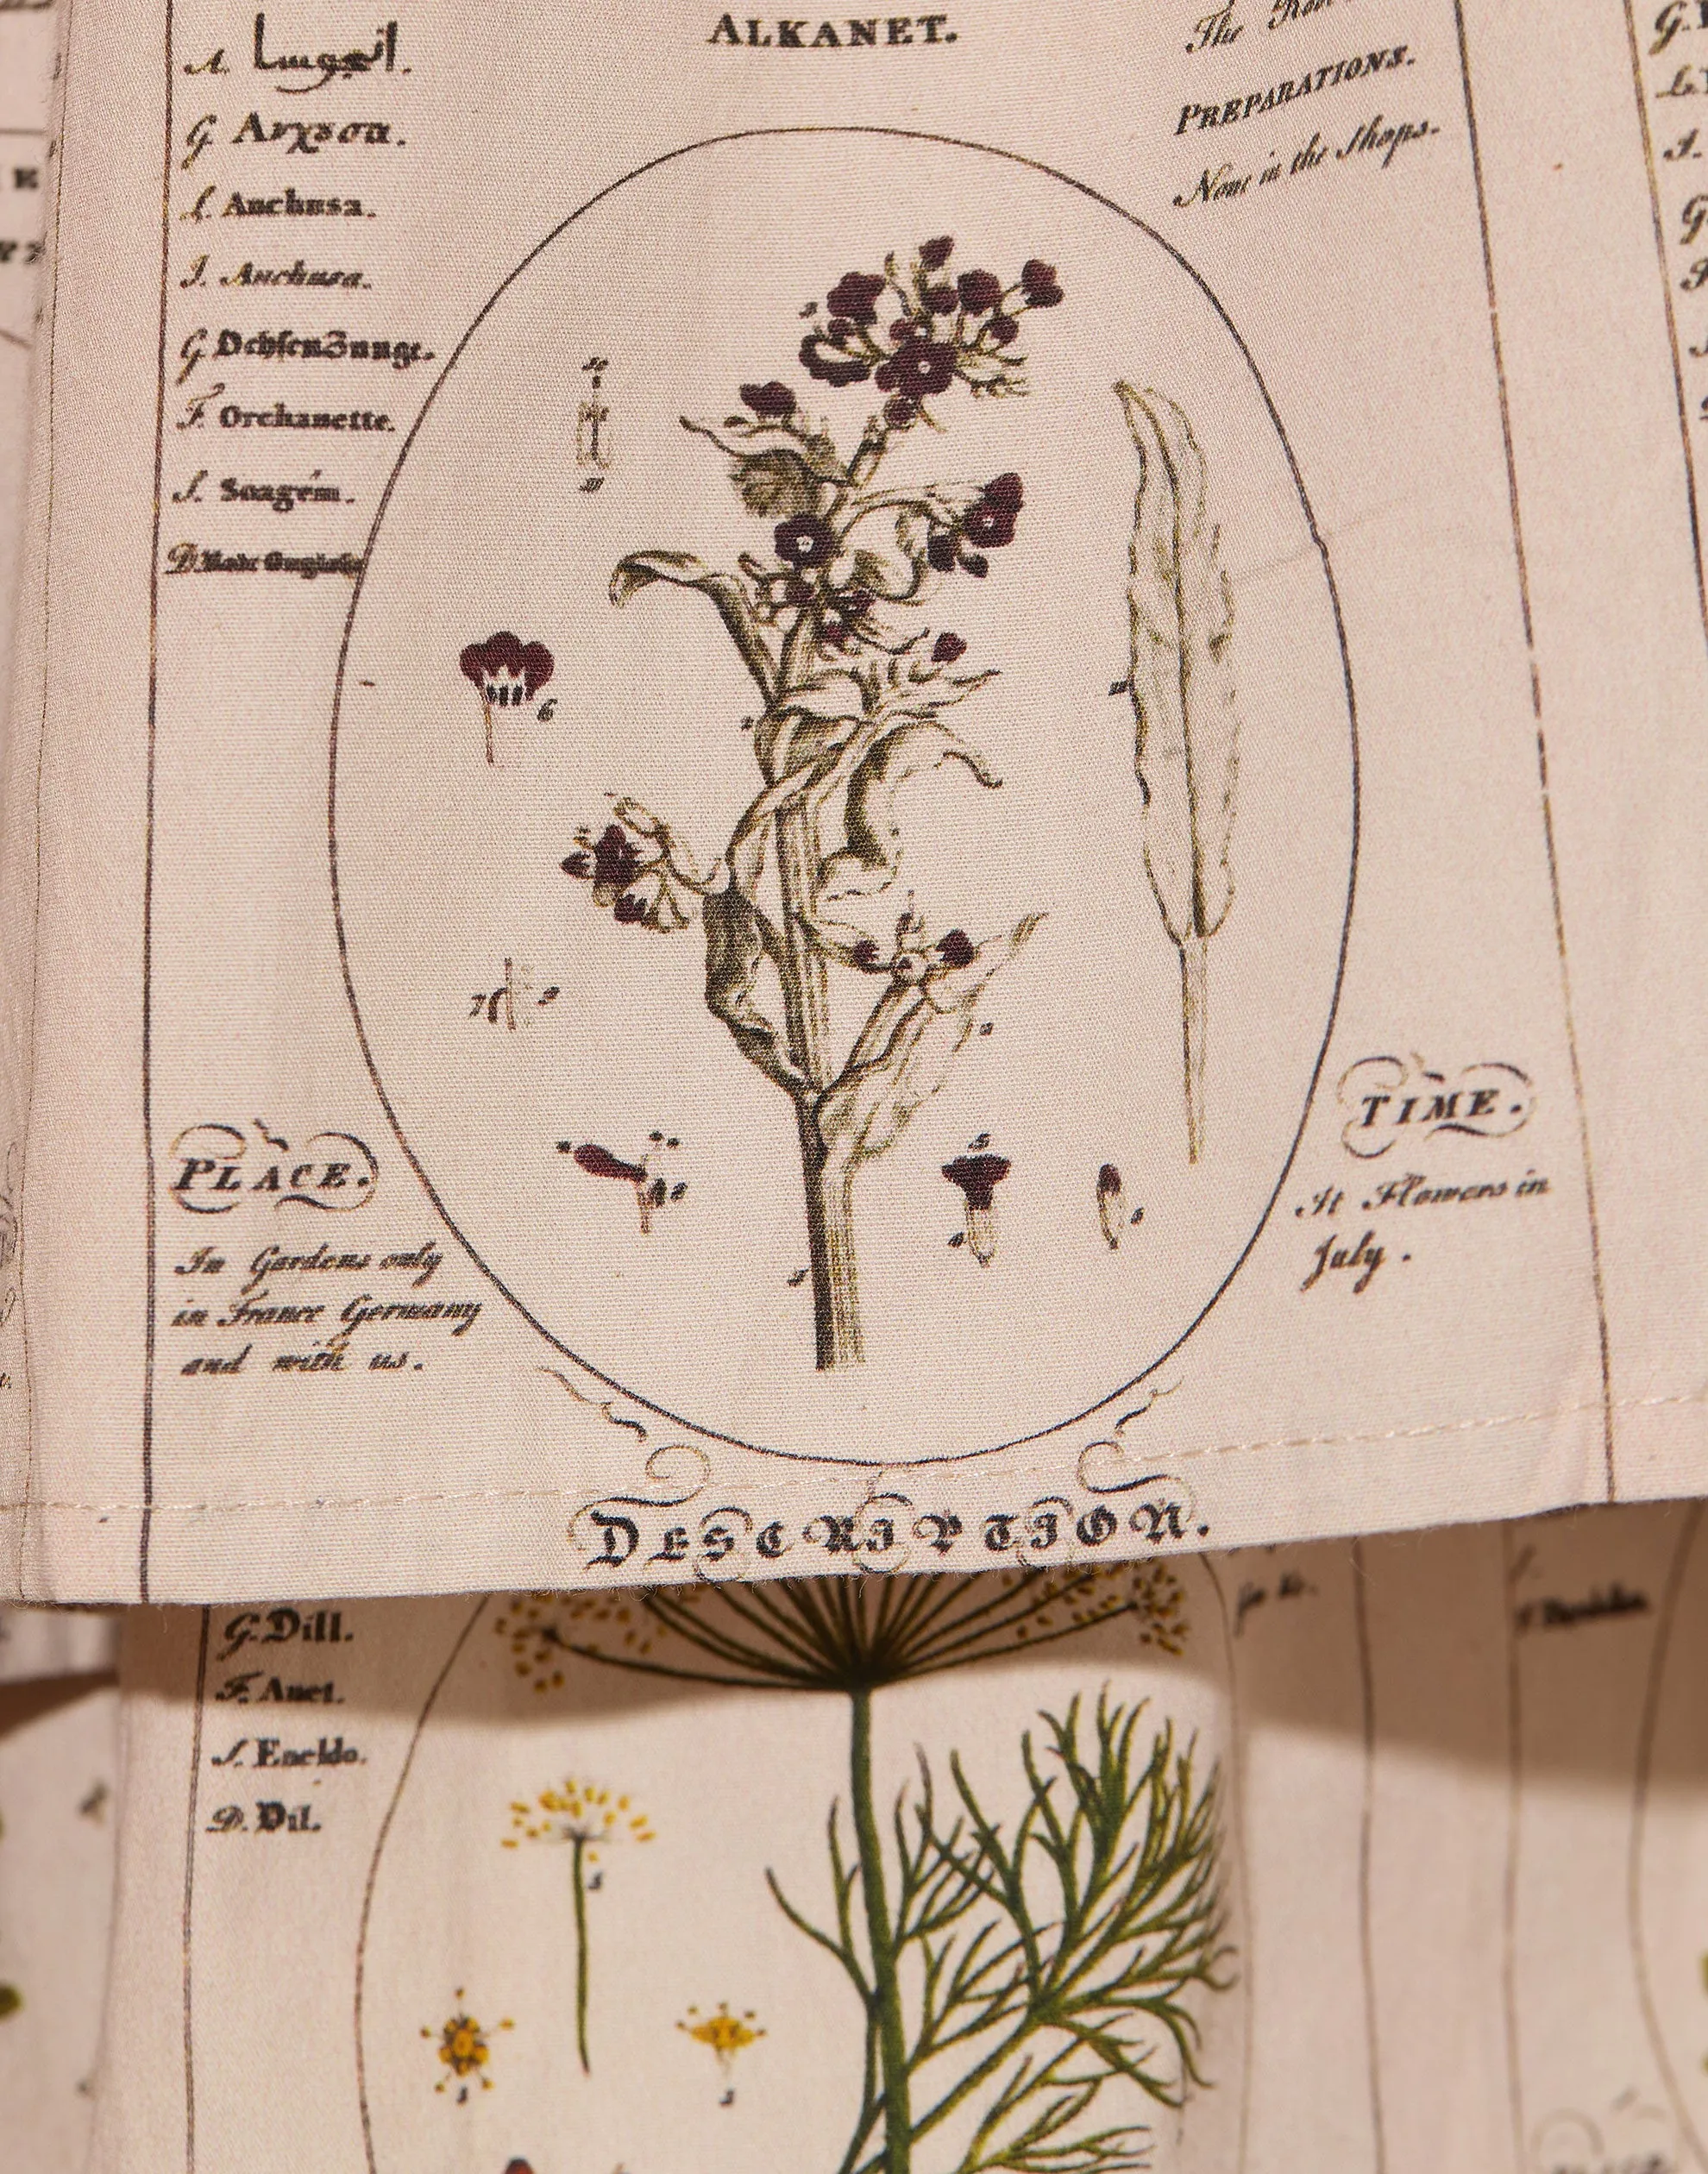 ALKANET.
A. انجوسا.
G. Ανχȣσα.
L. Anchusa.
I. Anchusa.
G. OchsenZunge.
F. Orchanette.
S. Soagém.
D.
The
PREPARATIONS.
None in the Shops.
6
7
5
4
PLACE.
In Gardens only
in France Germany
and with us.
TIME.
It Flowers in
July.
DESCRIPTION.
G. Dill.
F. Anet.
S. Eneldo.
D. Dil.